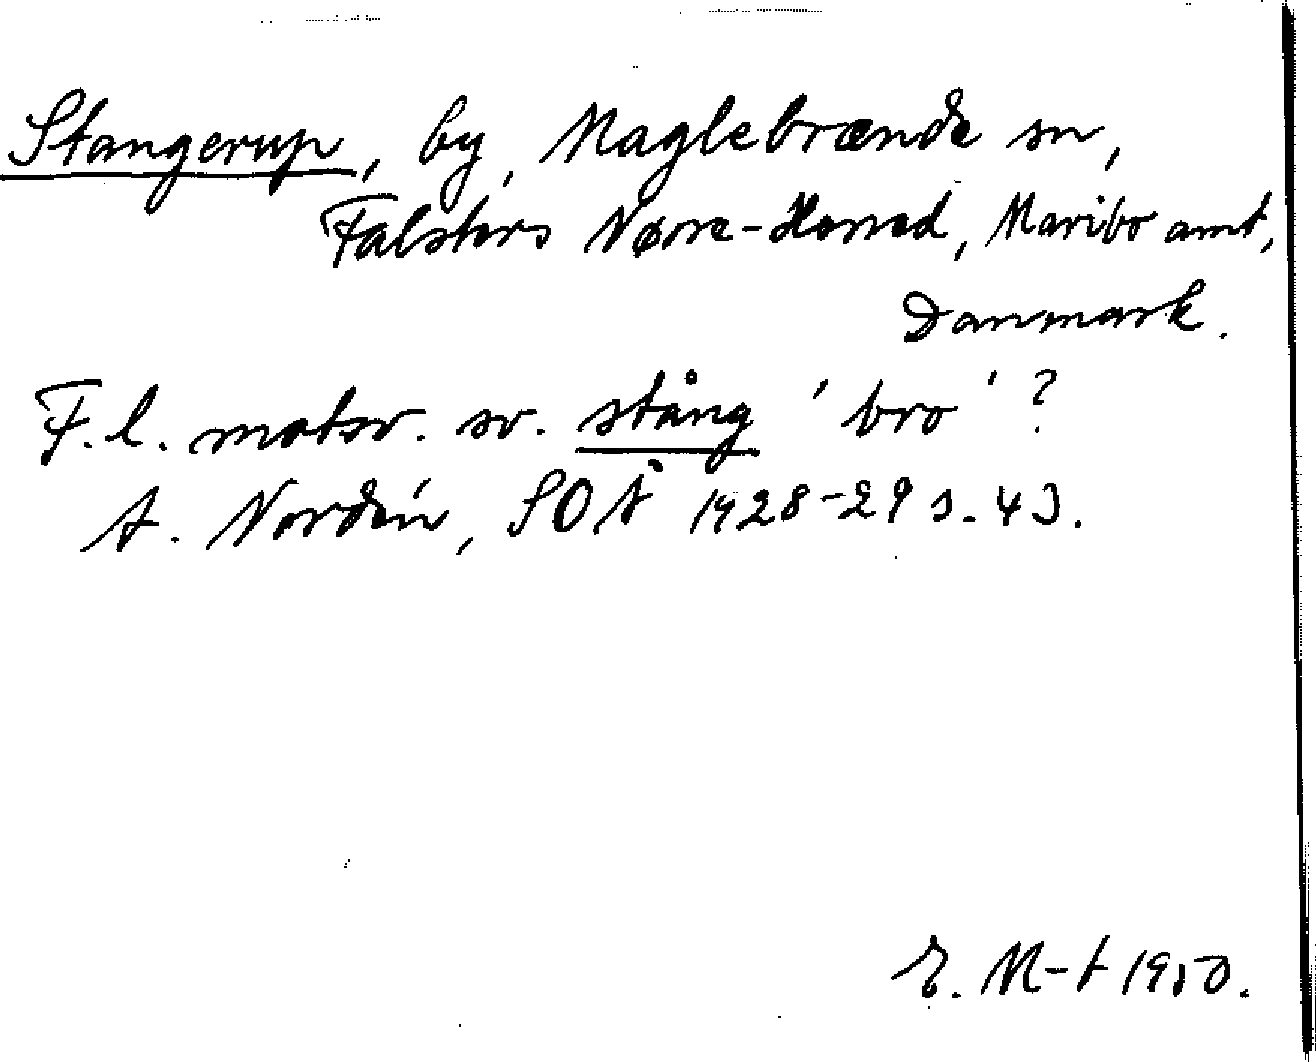 Stangerup, by, Maglebrænde sn,
Falsters Nørre-Herred, Maribo amt,
Danmark.
F.l. motsv. sv. stång 'bro'?
A. Nordén, SOÅ 1928-29 s. 43.
E. M-t 1950.